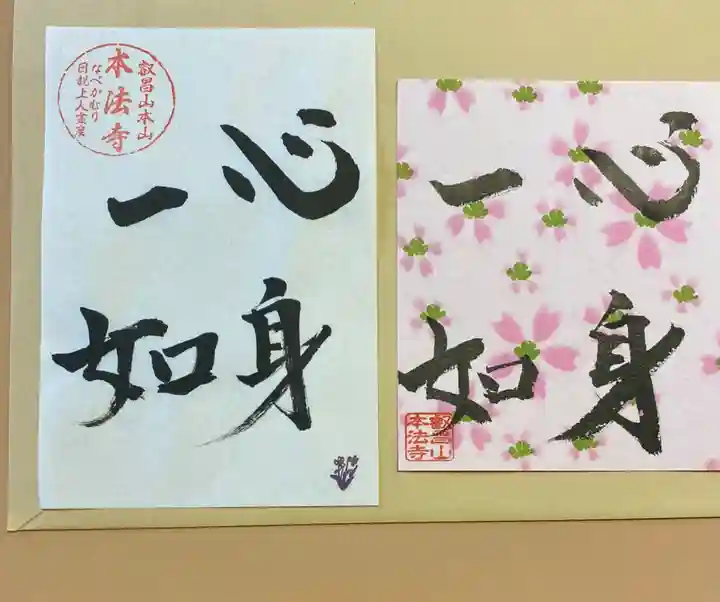 叡昌山本山
本法寺
なべかむり
日親上人霊宝
心身
一如
心身
一如
叡昌山
本法寺